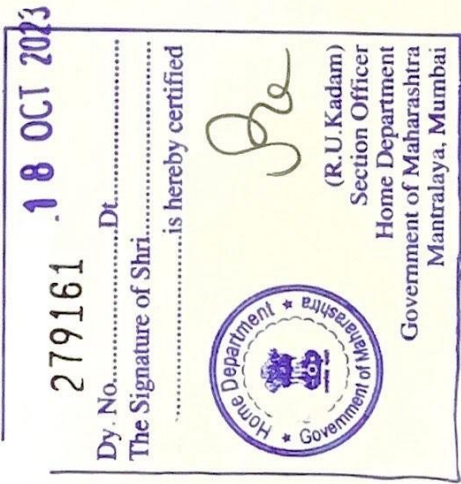 18 OCT 2023
279161
Dy. No....................Dt....................
The Signature of Shri....................
....................is hereby certified
Home Department
Government of Maharashtra
(R.U.Kadam)
Section Officer
Home Department
Government of Maharashtra
Mantralaya, Mumbai